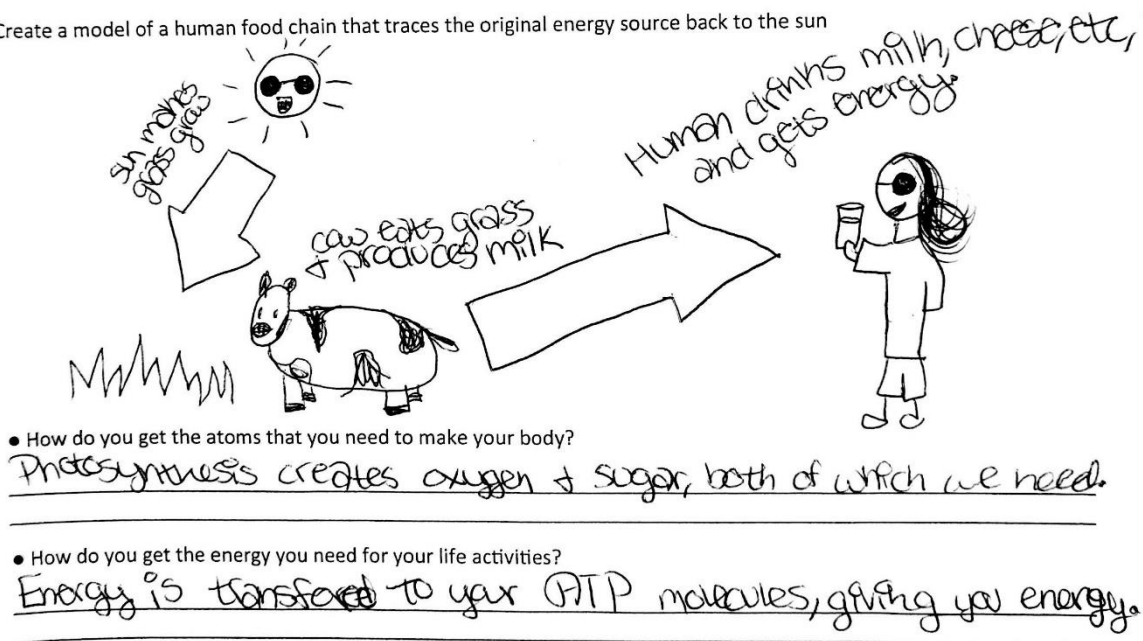 Create a model of a human food chain that traces the original energy source back to the sun
sun makes
grass grow
Human drinks milk, cheese, etc,
and gets energy.
cow eats grass
+ produces milk
• How do you get the atoms that you need to make your body?
Photosynthesis creates oxygen + sugar, both of which we need.
• How do you get the energy you need for your life activities?
Energy is transfered to your ATP molecules, giving you energy.